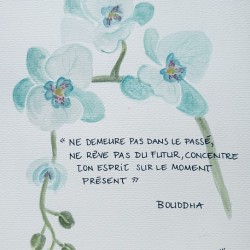 « NE DEMEURE PAS DANS LE PASSÉ,
NE RÊVE PAS DU FUTUR, CONCENTRE
TON ESPRIT SUR LE MOMENT
PRÉSENT »
BOUDDHA